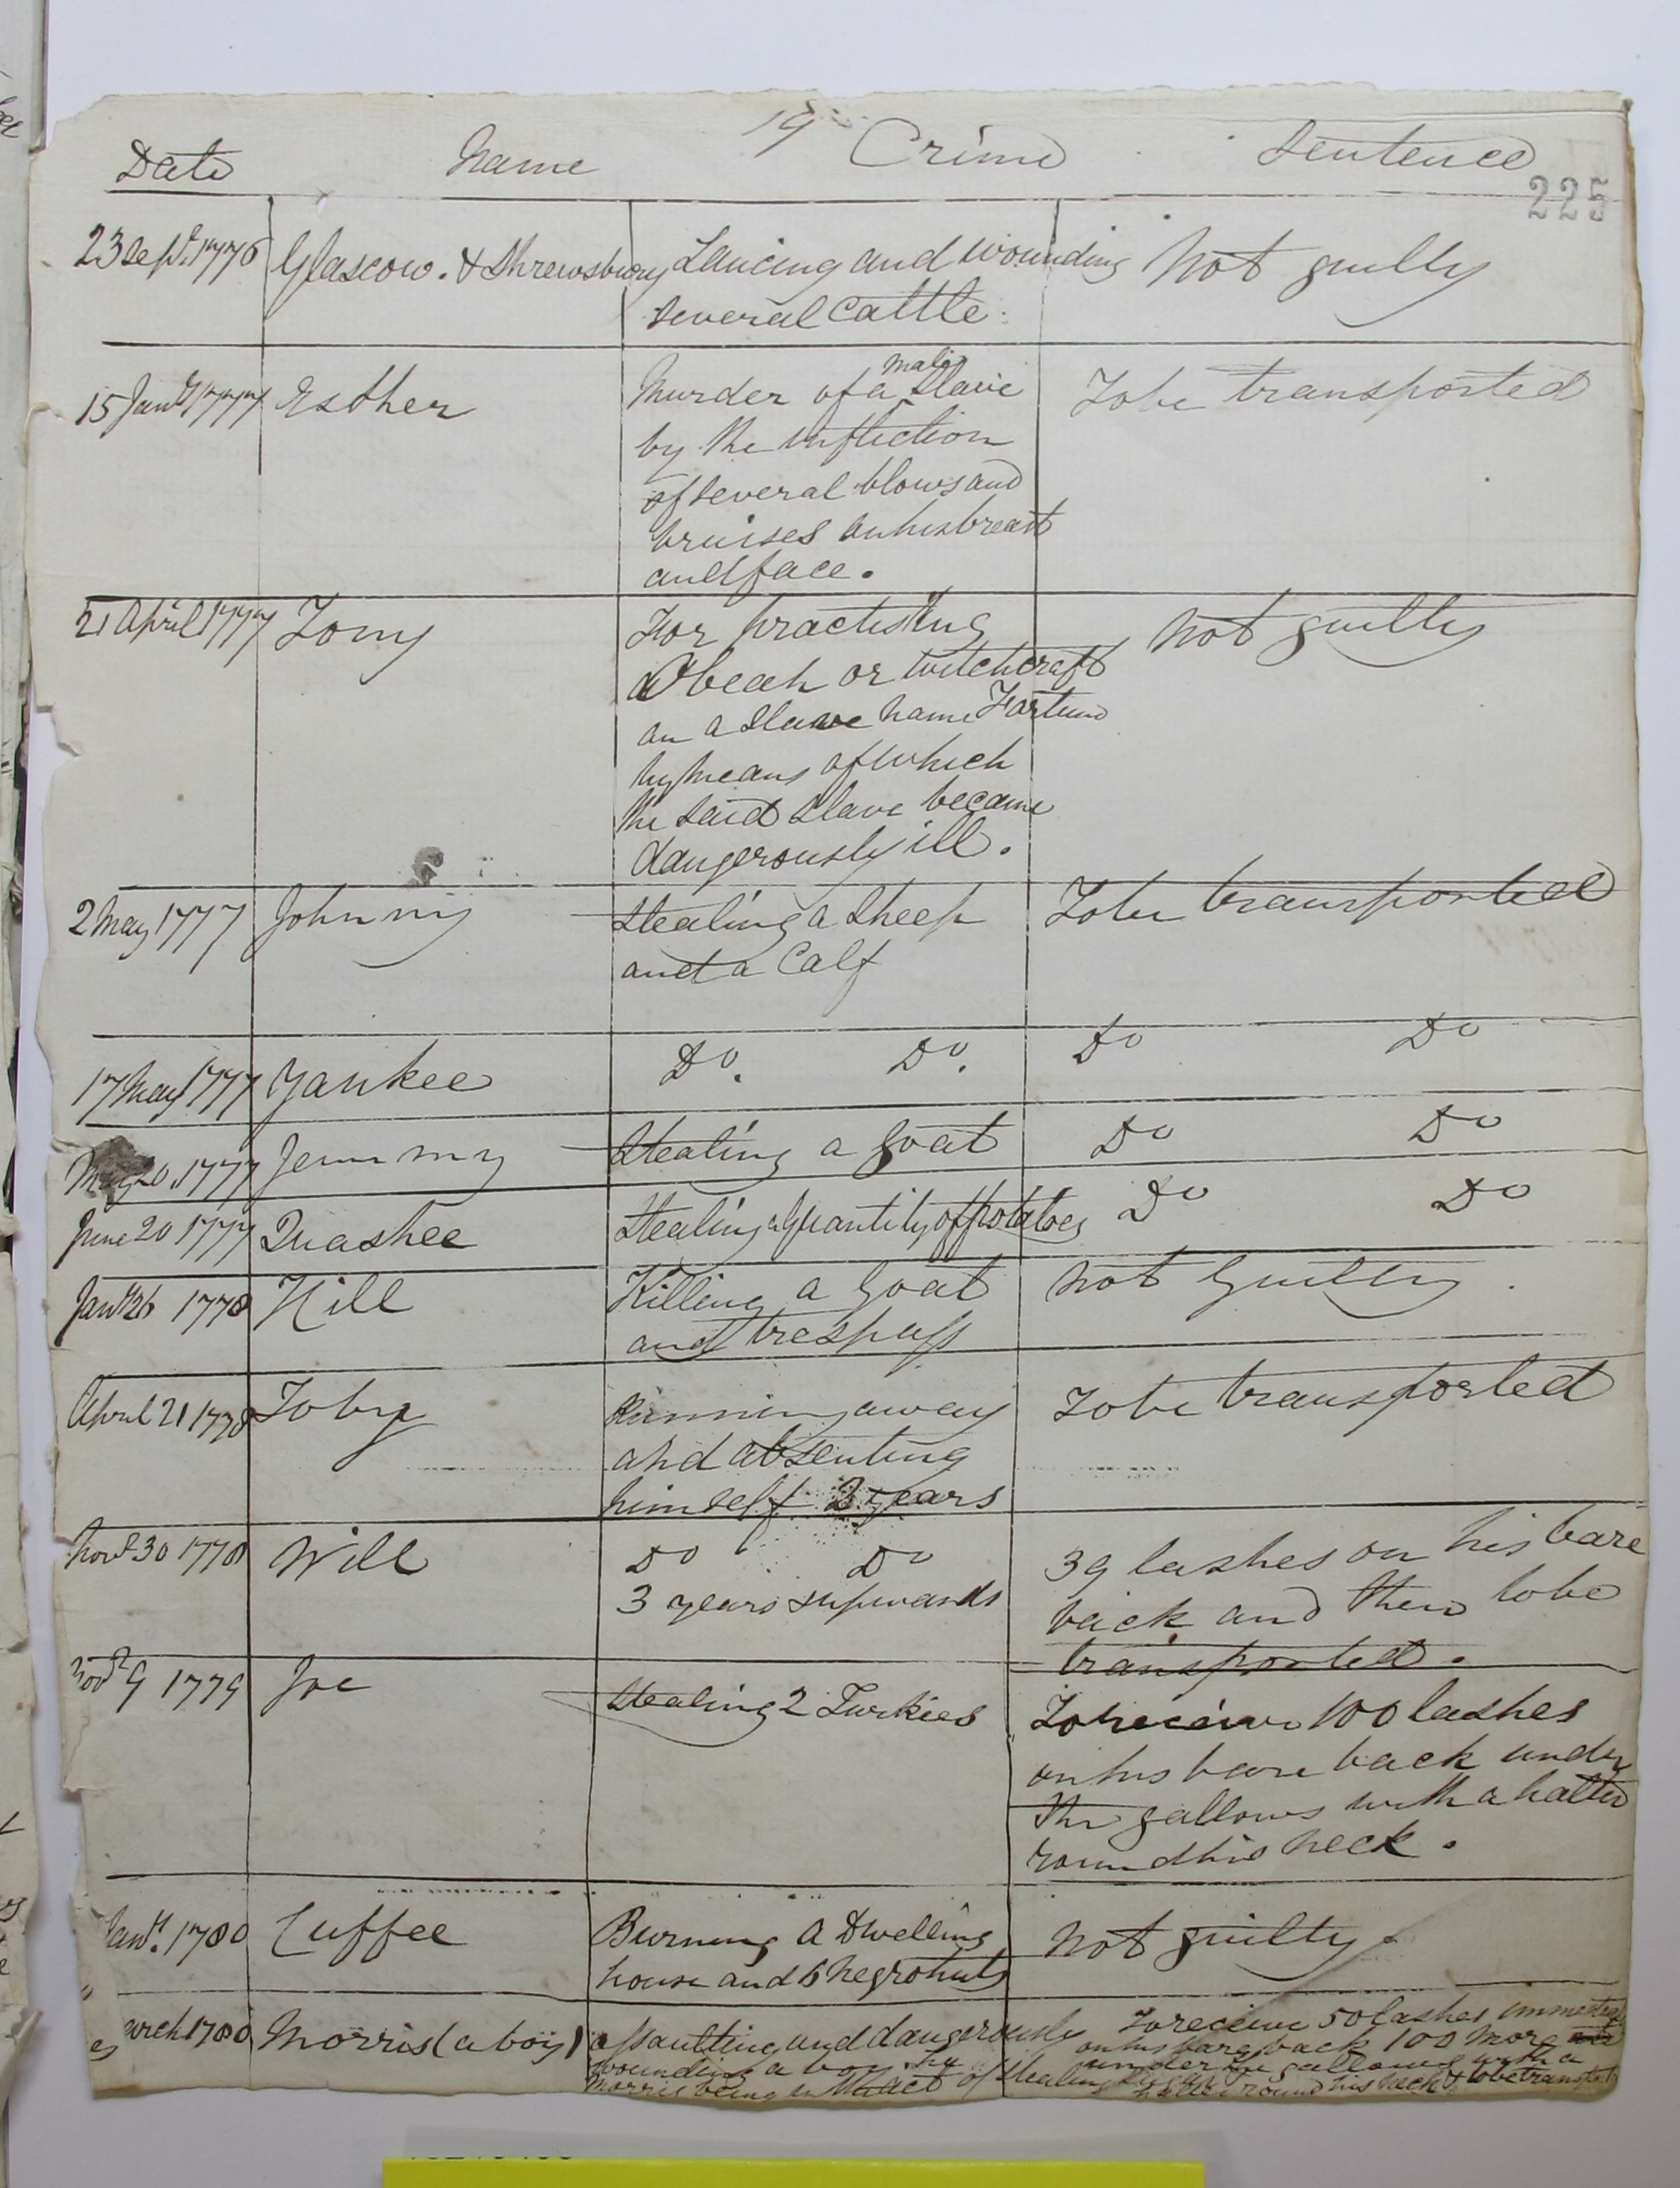 19
Date Name Crime Sentence
225
23 Sept. 1776 Glascow. & Shrewsbury Lancing and wounding Not guilty
several Cattle.
15 Jany 1777 Esther Murder of a male Slave To be transported
by the infliction
of several blows and
bruises on his breast
and face.
21 April 1777 Tony For practising not guilty
Obeah or witchcraft
on a slave name Fortune
by means of which
the said slave became
dangerously ill.
2 May 1777 Johnny Stealing a Sheep To be transported
and a Calf
17 May 1777 Yankee Do. Do. Do Do
May 20. 1777 Jemmy Stealing a goat Do Do
June 20 1777 Quashee Stealing a quantity of potatoes Do Do
Jany 26 1778 Hill Killing a Goat not Guilty.
and trespass
April 21 1778 Toby Running away To be transported
and absenting
himself 2 years
Novr 30 1778 Will Do Do 39 lashes on his bare
3 years & upwards back and then to be
transported.
Novr 9 1779 Joe Stealing 2 Turkies To receive 100 lashes
on his bare back under
the gallows with a halter
round his neck.
Jany. 1780 Cuffee Burning a Dwelling not guilty
house and 6 negro huts
arch 1780 Morris (a boy) assaulting and dangerously To receive 50 lashes
wounding a boy on his bare back 100 more
Morris being in the act of stealing under the gallows with a
halter round his neck & to be transported